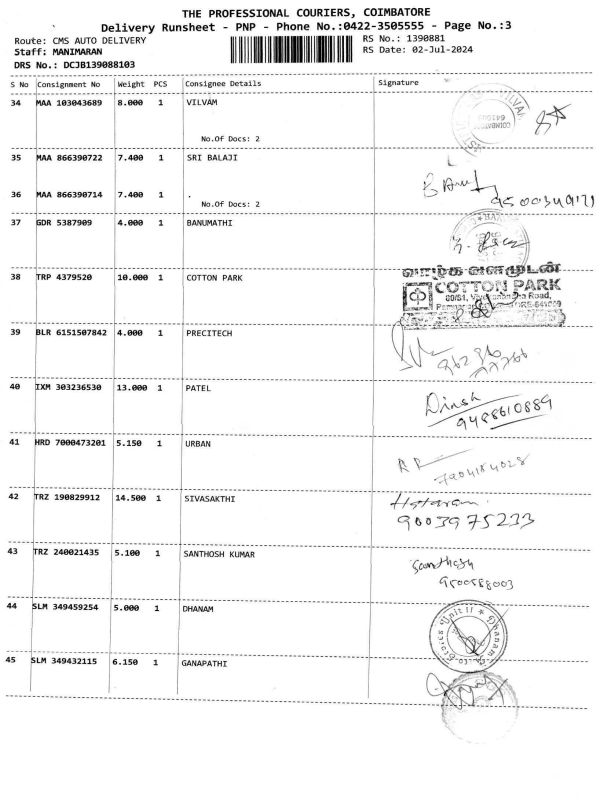 THE PROFESSIONAL COURIERS, COIMBATORE
Delivery Runsheet - PNP - Phone No.:0422-3505555 - Page No.:3
Route: CMS AUTO DELIVERY RS No.: 1390881
Staff: MANIMARAN RS Date: 02-Jul-2024
DRS No.: DCJB139088103
S No Consignment No Weight PCS Consignee Details Signature
34 MAA 103043689 8.000 1 VILVAM
No.Of Docs: 2
35 MAA 866390722 7.400 1 SRI BALAJI
36 MAA 866390714 7.400 1 .
No.Of Docs: 2
37 GDR 5387909 4.000 1 BANUMATHI
38 TRP 4379520 10.000 1 COTTON PARK
வாழ்க வளமுடன்
COTTON PARK
39 BLR 6151507842 4.000 1 PRECITECH
40 IXM 303236530 13.000 1 PATEL
Dinesh
9488610889
41 HRD 7000473201 5.150 1 URBAN
7904184028
42 TRZ 190829912 14.500 1 SIVASAKTHI
9003975233
43 TRZ 240021435 5.100 1 SANTHOSH KUMAR
Santhosh
9500588003
44 SLM 349459254 5.000 1 DHANAM
45 SLM 349432115 6.150 1 GANAPATHI